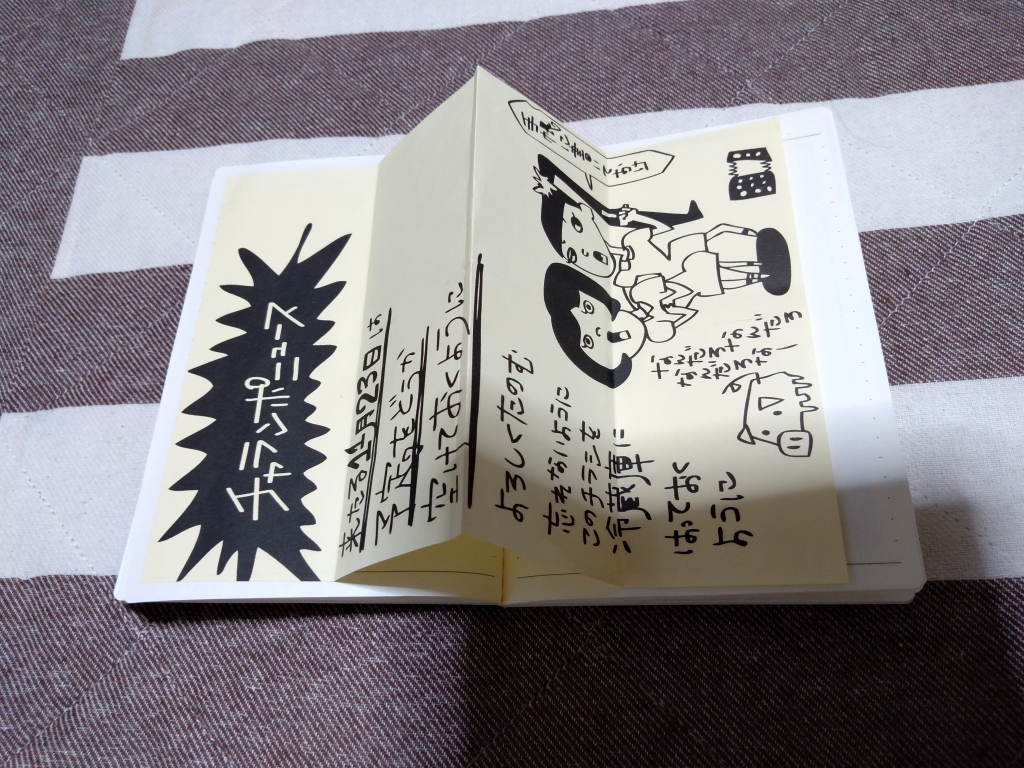 チャランポニュース
来たる11月23日は
予定をどうか
空けておくように
よろしくたのむ
忘れないように
このチラシを
冷蔵庫に
はっておく
ように
なんだろなんだろ
なんだろなー